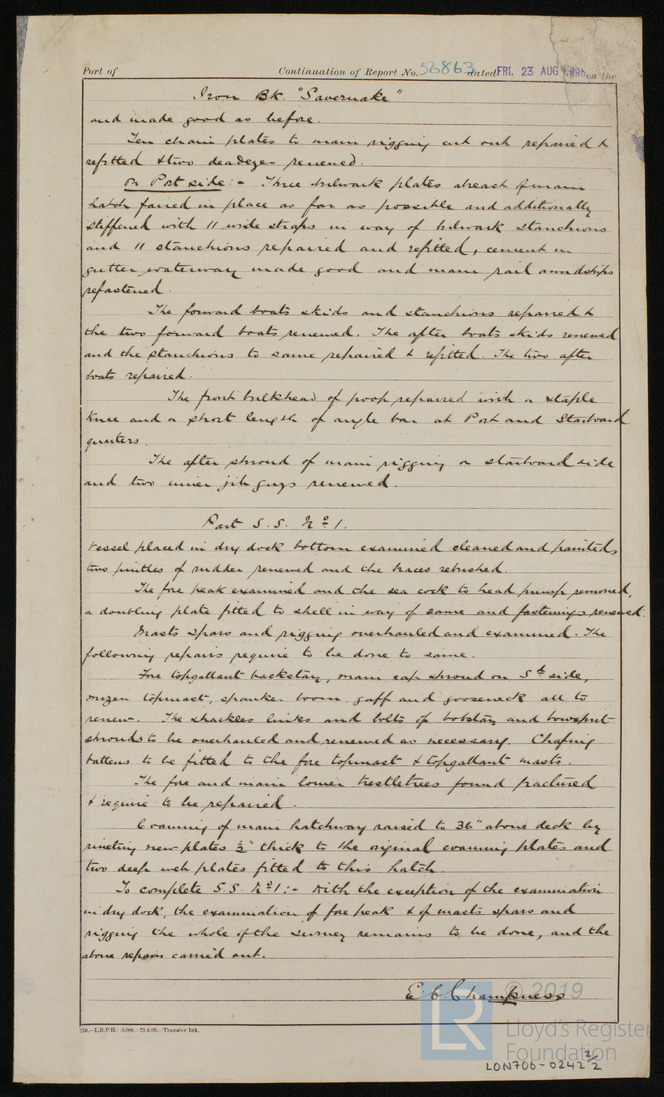 Port of Continuation of Report No. 56863 dated FRI. 23 AUG 1895 on the
Iron Bk. "Savernake"
and made good as before.
Ten chain plates to main rigging cut out repaired &
refitted & two deadeyes renewed.
On Port side:- Three bulwark plates abreast of main
hatch faired in place as far as possible and additionally
stiffened with 11 wide straps in way of bulwark stanchions
and 11 stanchions repaired and refitted, cement in
gutter waterway made good and main rail amidships
refastened.
The forward boats skids and stanchions repaired &
the two forward boats renewed. The after boats skids renewed
and the stanchions to same repaired & refitted. The two after
boats repaired.
The front bulkhead of poop repaired with a staple
knee and a short length of angle bar at Port and Starboard
quarters.
The after shroud of main rigging on starboard side
and two inner jib guys renewed.
Part S.S. No 1.
Vessel placed in dry dock bottom examined cleaned and painted,
two pintles of rudder renewed and the braces rebushed.
The fore peak examined and the sea cock to head pump removed,
a doubling plate fitted to shell in way of same and fastenings renewed.
Masts spars and rigging overhauled and examined. The
following repairs require to be done to same.
Fore topgallant backstay, main cap shroud on Sd side,
mizen topmast, spanker boom gaff and gooseneck all to
renew. The shackles links and bolts of bobstay and bowsprit
shrouds to be overhauled and renewed as necessary. Chafing
battens to be fitted to the fore topmast & topgallant masts.
The fore and main lower trestletrees found fractured
& require to be repaired.
Coaming of main hatchway raised to 36" above deck by
riveting new plates ½" thick to the original coaming plates and
two deep web plates fitted to this hatch.
To complete S.S. No 1:- With the exception of the examination
in dry dock, the examination of fore peak & of masts spars and
rigging the whole of the survey remains to be done, and the
above repairs carried out.
E C Champness
© 2019
LR
Lloyd's Register
Foundation
LON706-0242 2/2